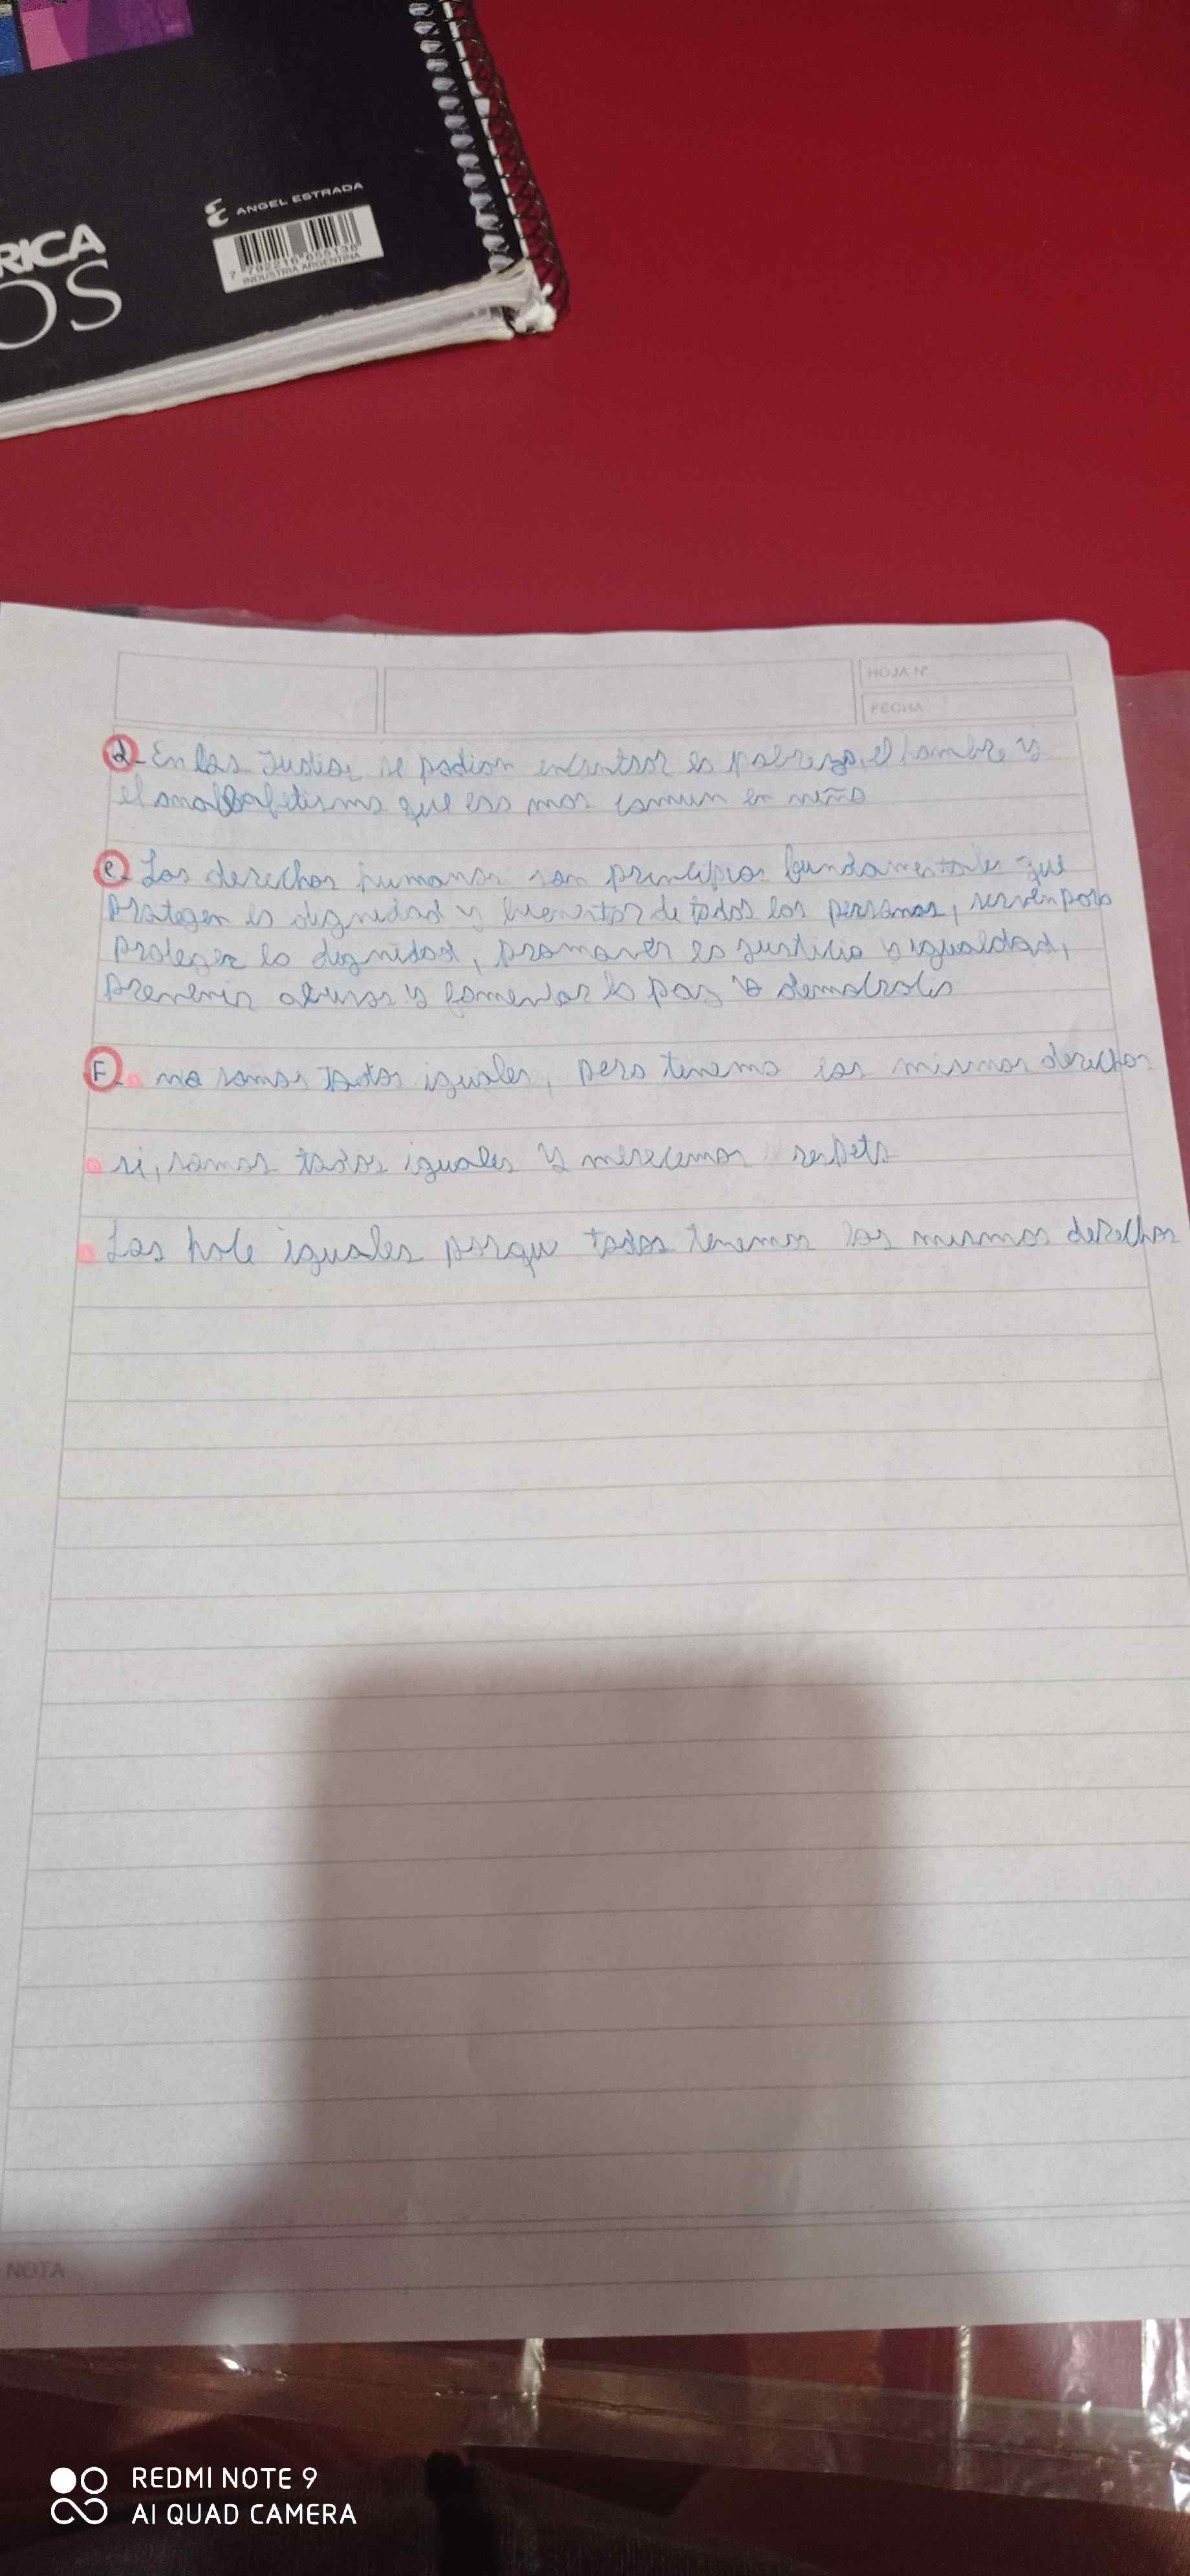 RICA
OS
ANGEL ESTRADA
7 792716 655136
INDUSTRIA ARGENTINA
HOJA N°
FECHA
d- En las Judias se podian encontrar la pobreza, el hambre y
el analbafetismo que era mas comun en niño
e- Los derechos humanos son principios fundamentales que
protegen la dignidad y bienestar de todas las personas, sirven para
proteger la dignidad, promover la justicia y igualdad,
prevenir abusos y fomentar la paz y democracia
F- no somos todos iguales, pero tenemo los mismos derechos
si, somos todos iguales y merecemos respeto
Los hace iguales porque todos tenemos los mismos derechos
NOTA
REDMI NOTE 9
AI QUAD CAMERA